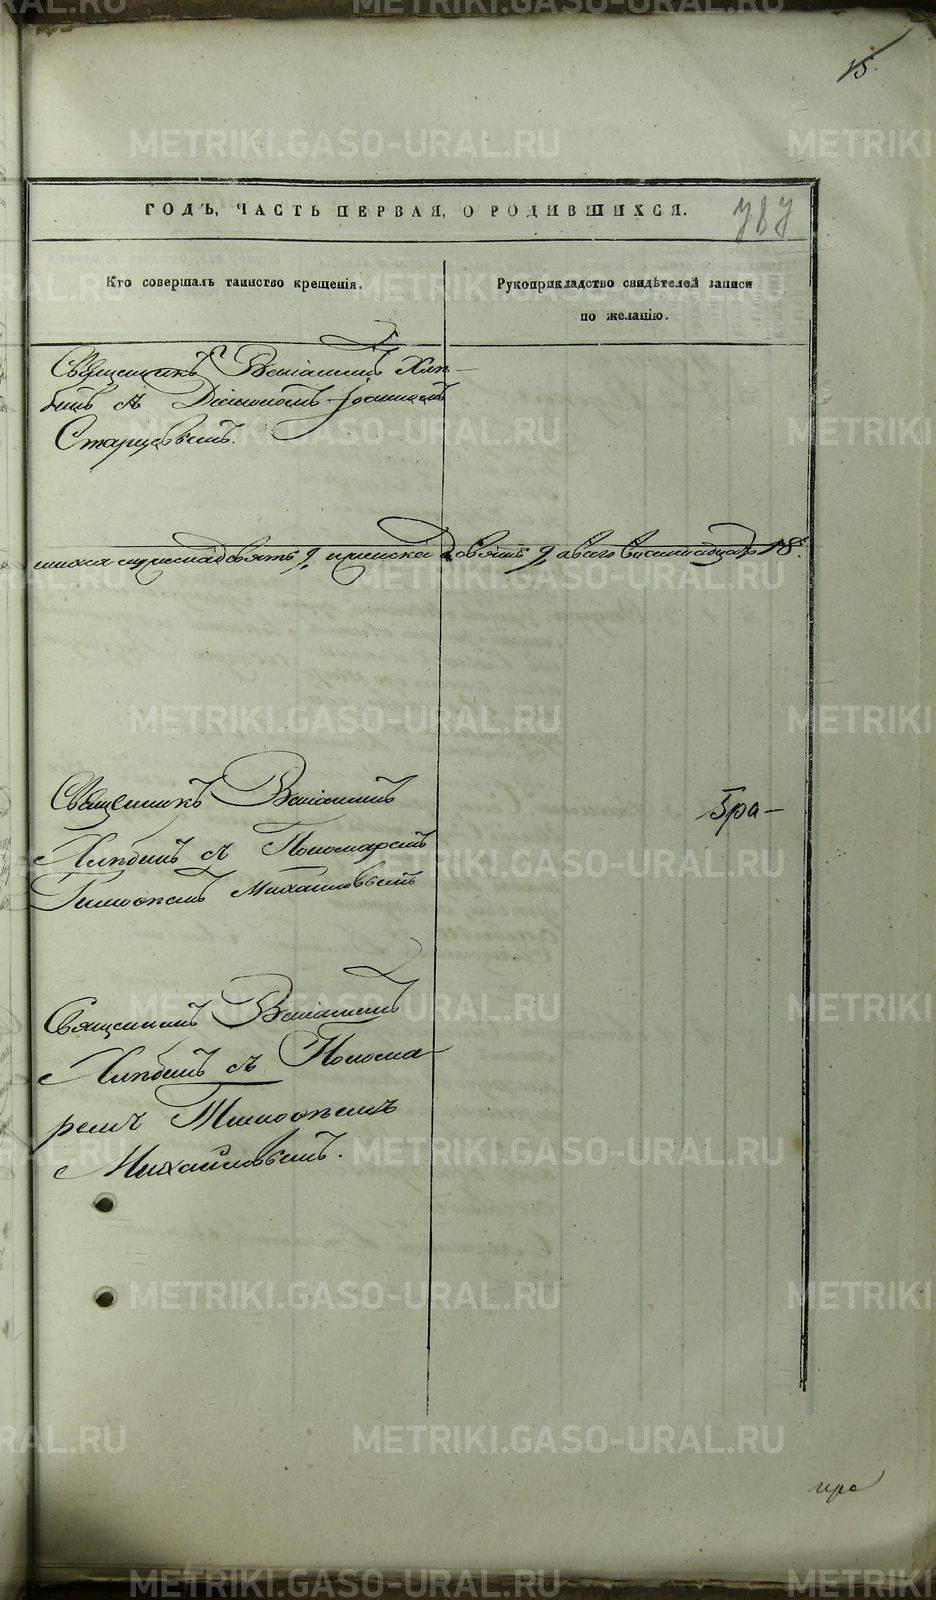 15.
ГОДЪ, ЧАСТЬ ПЕРВАЯ, О РОДИВШИХСЯ.
787
Кто совершалъ таинство крещенія.
Рукоприкладство свидѣтелей записи
по желанію.
Священникъ Веніаминъ Хлѣ-
бинъ съ Діакономъ Іоанномъ
Старцевымъ.
мужеска девять 9, женска девять 9, а всего восемнадцать 18.
Священникъ Веніаминъ
Хлѣбинъ съ Пономаремъ
Тимофеемъ Михайловымъ
Бра-
Священникъ Веніаминъ
Хлѣбинъ съ Понома-
ремъ Тимофеемъ
Михайловымъ.
METRIKI.GASO-URAL.RU